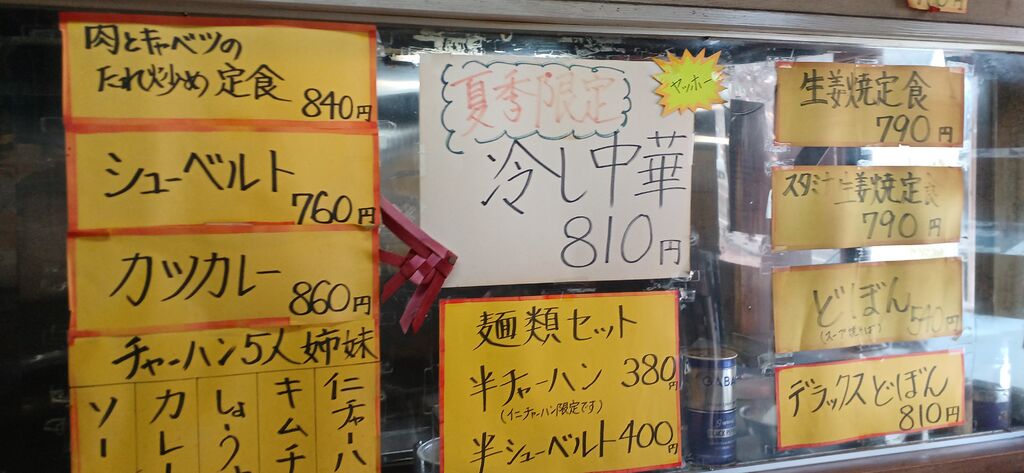 肉とキャベツの
たれ炒め定食
840円
シューベルト
760円
カツカレー
860円
チャーハン5人姉妹
イニチャーハ
キムチ
しょうゆ
カレー
ソー
夏季限定
ヤッホー
冷し中華
810円
麺類セット
半チャーハン 380円
(イニチャーハン限定です)
半シューベルト400円
生姜焼定食
790円
スタミナ生姜焼定食
790円
どぼん
(スープ焼そば)
540円
デラックスどぼん
810円
GABA